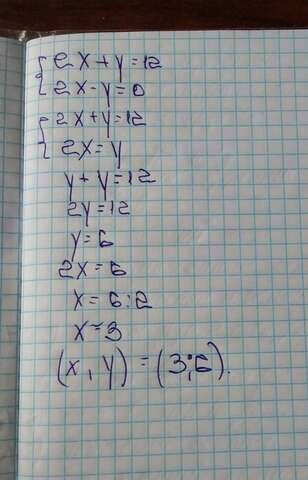 {2x+y=12
{2x-y=0
{2x+y=12
{2x=y
y+y=12
2y=12
y=6
2x=6
x=6:2
x=3
(x,y)=(3;6).